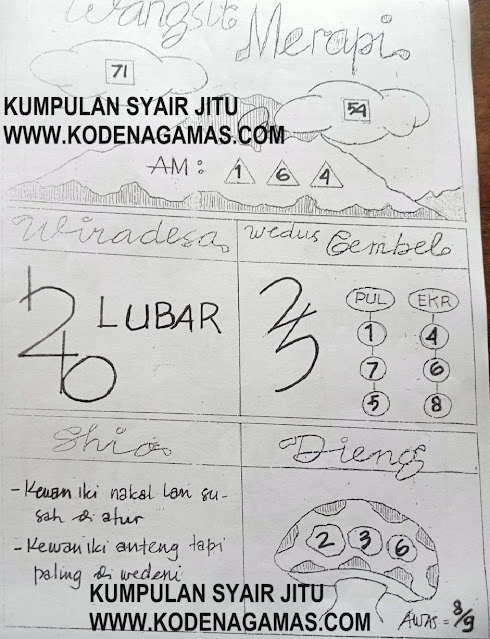 Wangsit
Merapi
71
KUMPULAN SYAIR JITU
54
WWW.KODENAGAMAS.COM
AM : 1 6 4
Wiradesa
Wedus Gembel
LUBAR
PUL EKR
1 4
7 6
5 8
Shio
Dieng
- Kewan iki nakal lan su-
sah di atur
- Kewan iki anteng tapi
paling di wedeni
2 3 6
KUMPULAN SYAIR JITU
WWW.KODENAGAMAS.COM
AWAS = 8/9